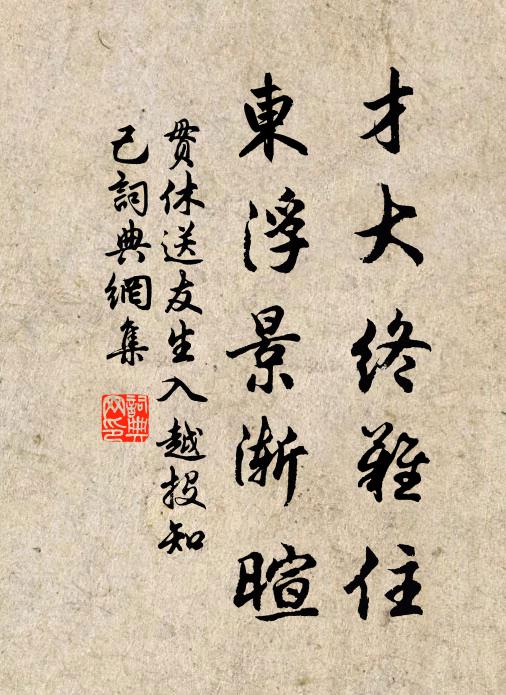 才大終難住
東浮景漸暄
贯休送友生入越投知
己詞典網集
詞典
网印